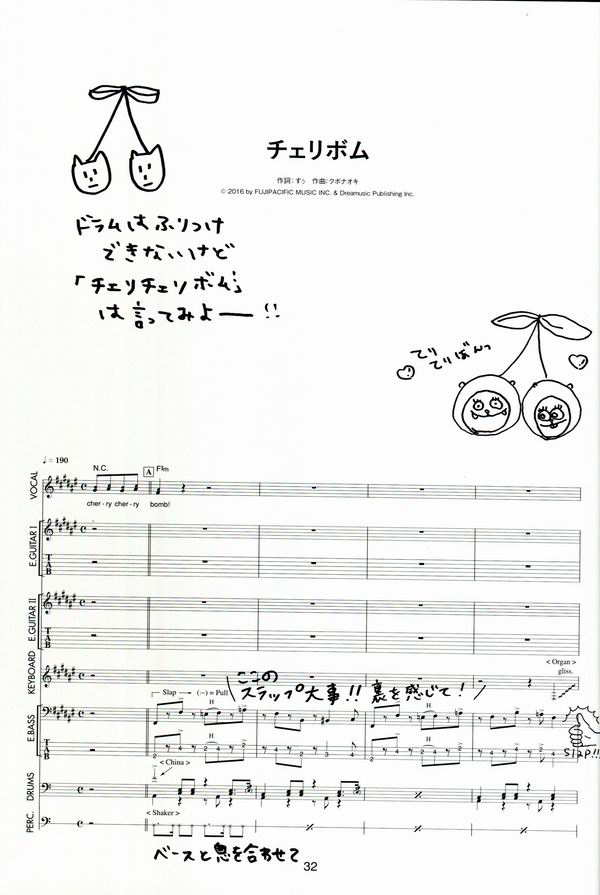 チェリボム
作詞：すぅ 作曲：クボナオキ
© 2016 by FUJIPACIFIC MUSIC INC. & Dreamusic Publishing Inc.
ドラムはふりつけ
できないけど
「チェリチェリボム」
は言ってみよー!!
てり
てりぼんっ
♩= 190
N.C.
A
F♯m
VOCAL
cher - ry cher - ry bomb!
E.GUITAR I
TAB
E.GUITAR II
TAB
KEYBOARD
< Organ >
gliss.
ここの
スラップ大事!! 裏を感じて!
Slap → (−) = Pull
H
H
E.BASS
TAB
H
H
Slap!!
< China >
DRUMS
< Shaker >
PERC.
ベースと息を合わせて
32